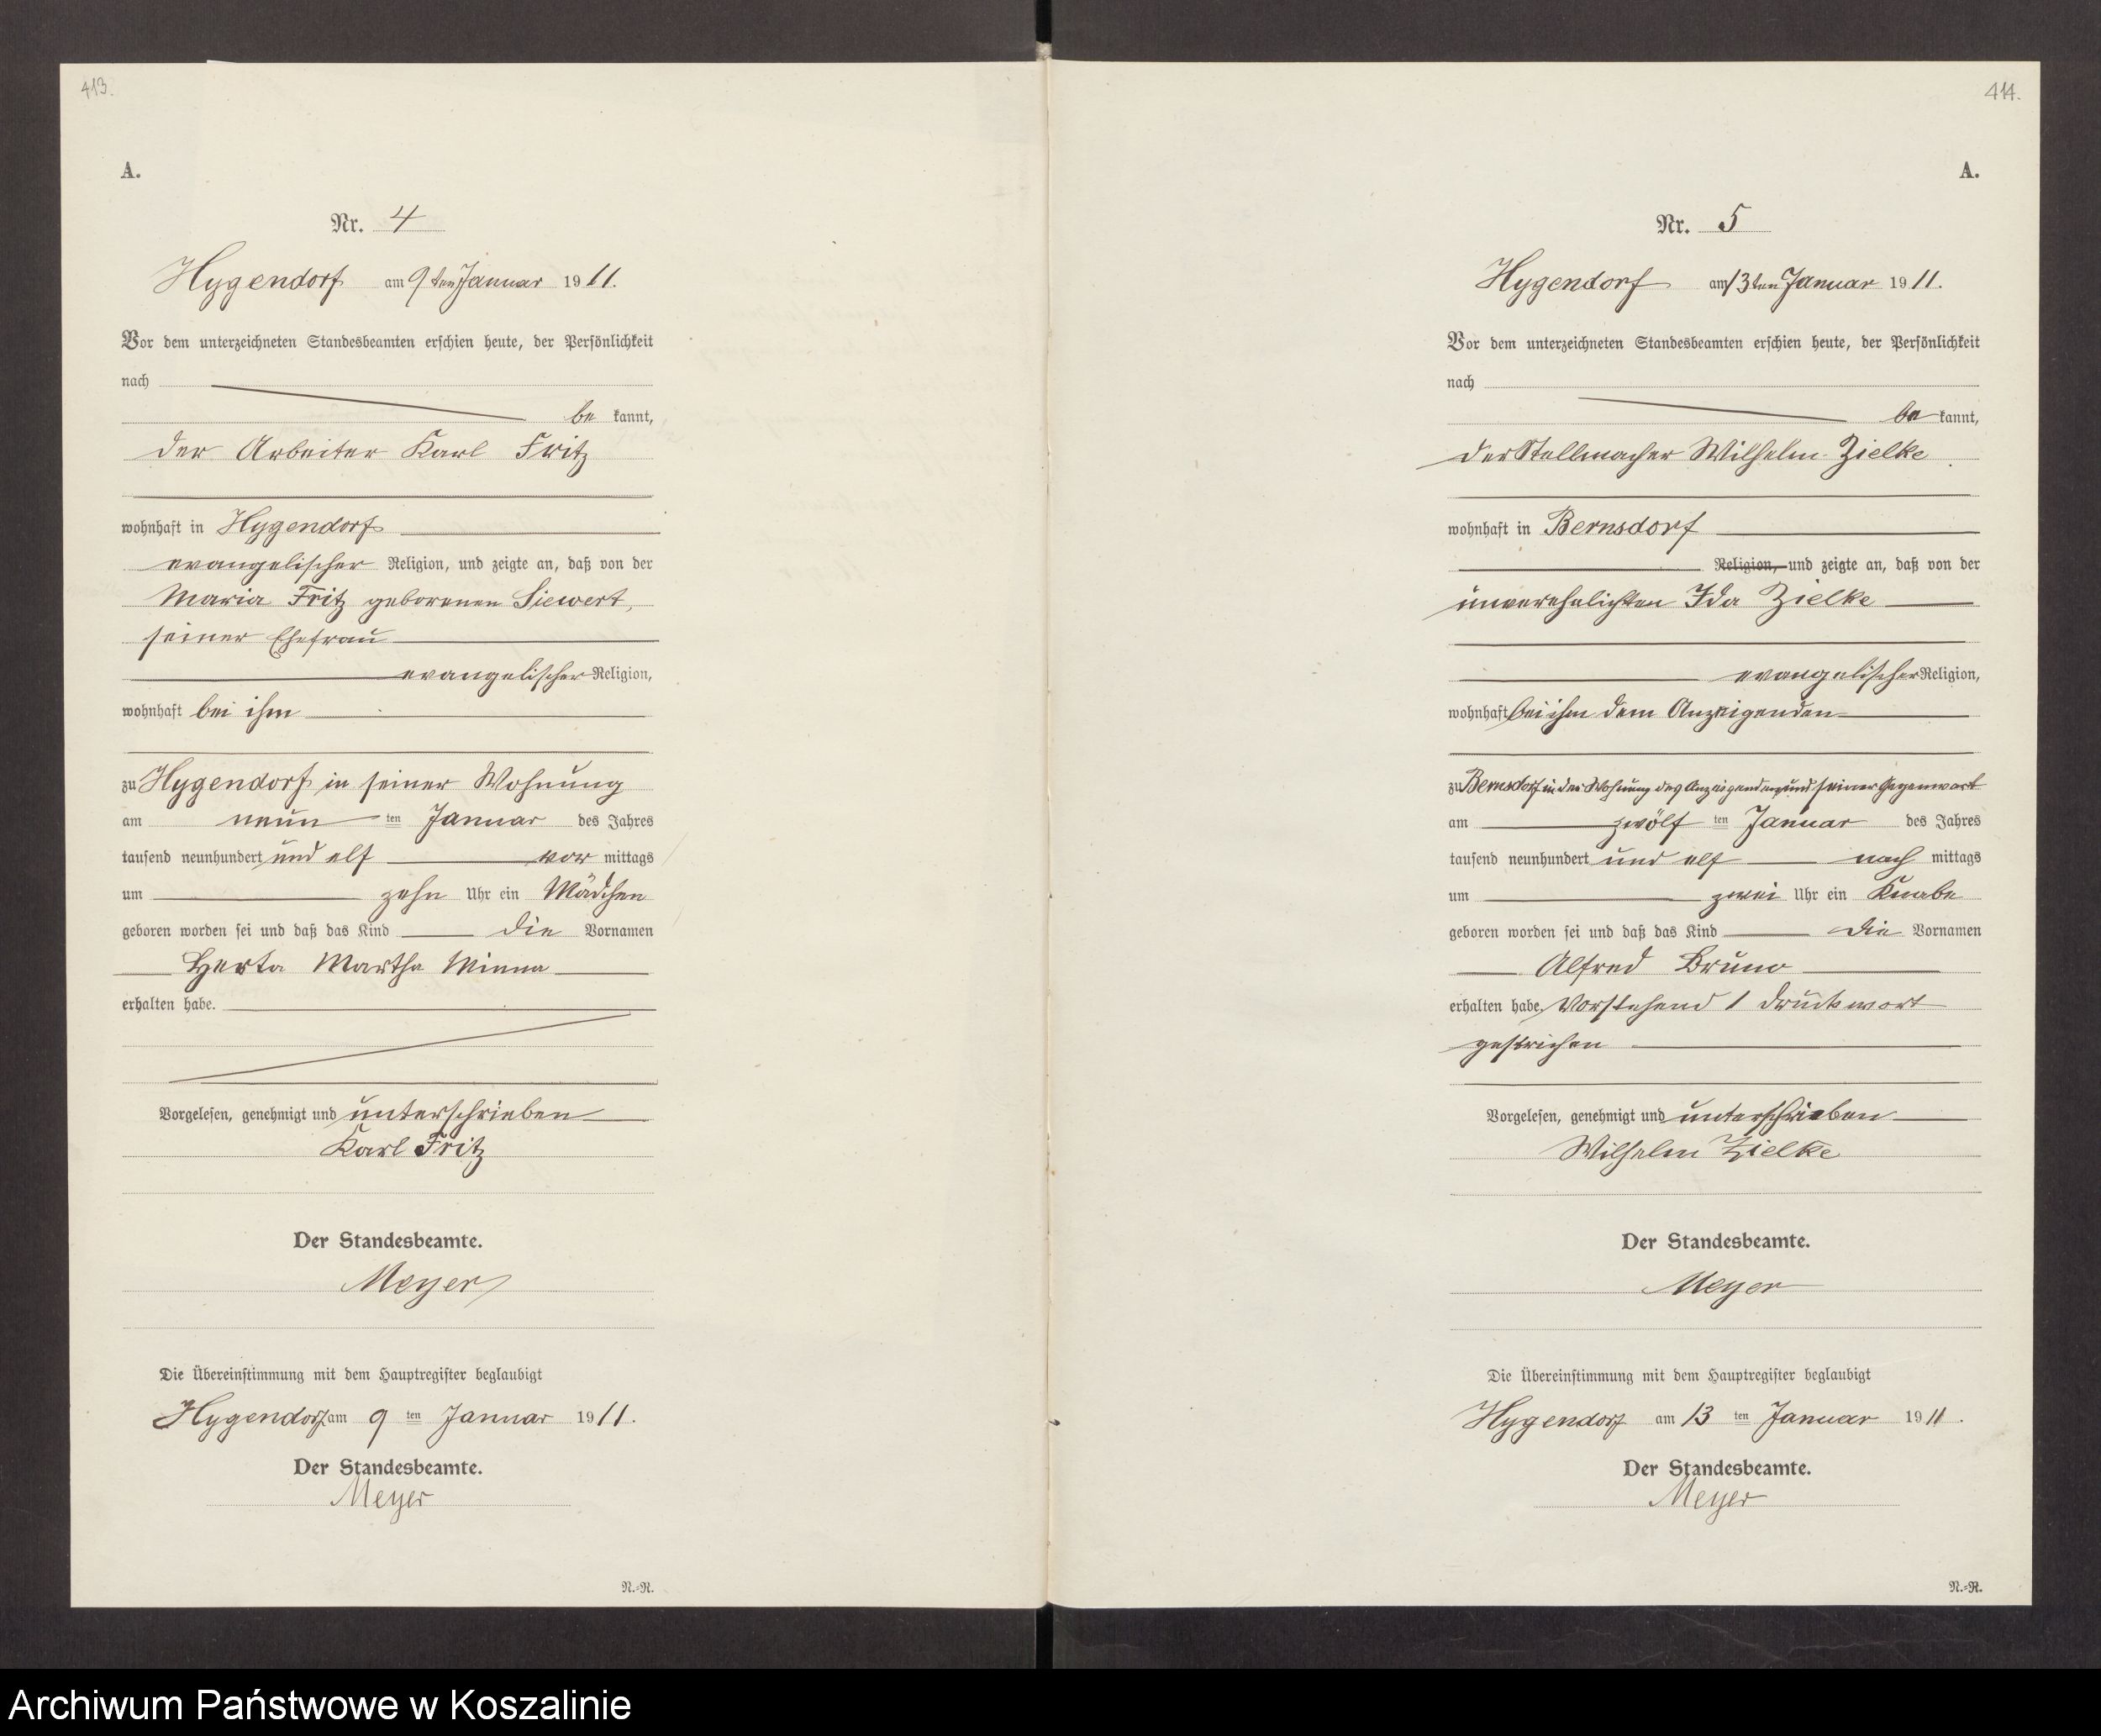 413.
A.
Nr. 4
Hygendorf am 9ten Januar 1911.
Vor dem unterzeichneten Standesbeamten erschien heute, der Persönlichkeit
nach
be kannt,
der Arbeiter Karl Fritz
wohnhaft in Hygendorf
evangelischer Religion, und zeigte an, daß von der
Maria Fritz geborenen Siewert,
seiner Ehefrau
evangelischer Religion,
wohnhaft bei ihm
zu Hygendorf in seiner Wohnung
am neun ten Januar des Jahres
tausend neunhundert und elf vor mittags
um zehn Uhr ein Mädchen
geboren worden sei und daß das Kind die Vornamen
Herta Martha Minna
erhalten habe.
Vorgelesen, genehmigt und unterschrieben
Karl Fritz
Der Standesbeamte.
Meyer
Die Übereinstimmung mit dem Hauptregister beglaubigt
Hygendorf am 9 ten Januar 1911.
Der Standesbeamte.
Meyer
N.=R.
414.
A.
Nr. 5
Hygendorf am 13ten Januar 1911.
Vor dem unterzeichneten Standesbeamten erschien heute, der Persönlichkeit
nach
be kannt,
der Stellmacher Wilhelm Zielke
wohnhaft in Bernsdorf
Religion, und zeigte an, daß von der
unverehelichten Ida Zielke
evangelischer Religion,
wohnhaft bei ihm dem Anzeigenden
zu Bernsdorf in der Wohnung des Anzeigenden und seiner Gegenwart
am zwölf ten Januar des Jahres
tausend neunhundert und elf nach mittags
um zwei Uhr ein Knabe
geboren worden sei und daß das Kind die Vornamen
Alfred Bruno
erhalten habe. Vorstehend 1 Druckwort
gestrichen
Vorgelesen, genehmigt und unterschrieben
Wilhelm Zielke
Der Standesbeamte.
Meyer
Die Übereinstimmung mit dem Hauptregister beglaubigt
Hygendorf am 13 ten Januar 1911.
Der Standesbeamte.
Meyer
N.=R.
Archiwum Państwowe w Koszalinie